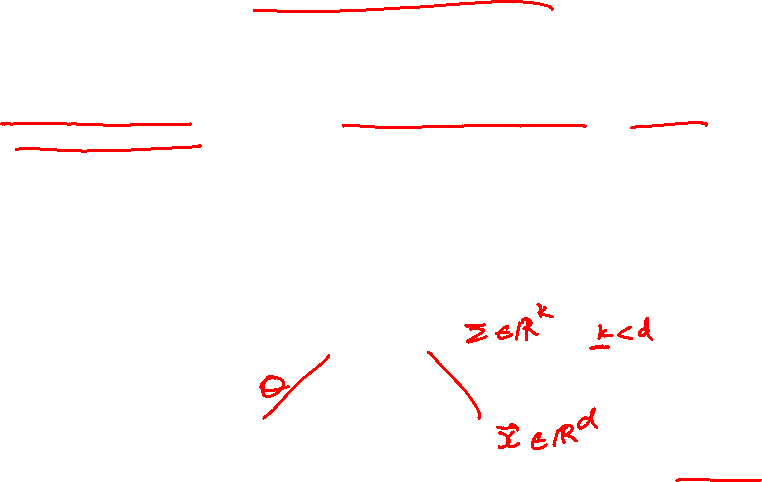 z ∈ ℝ^k k < d
θ
x⃗ ∈ ℝ^d